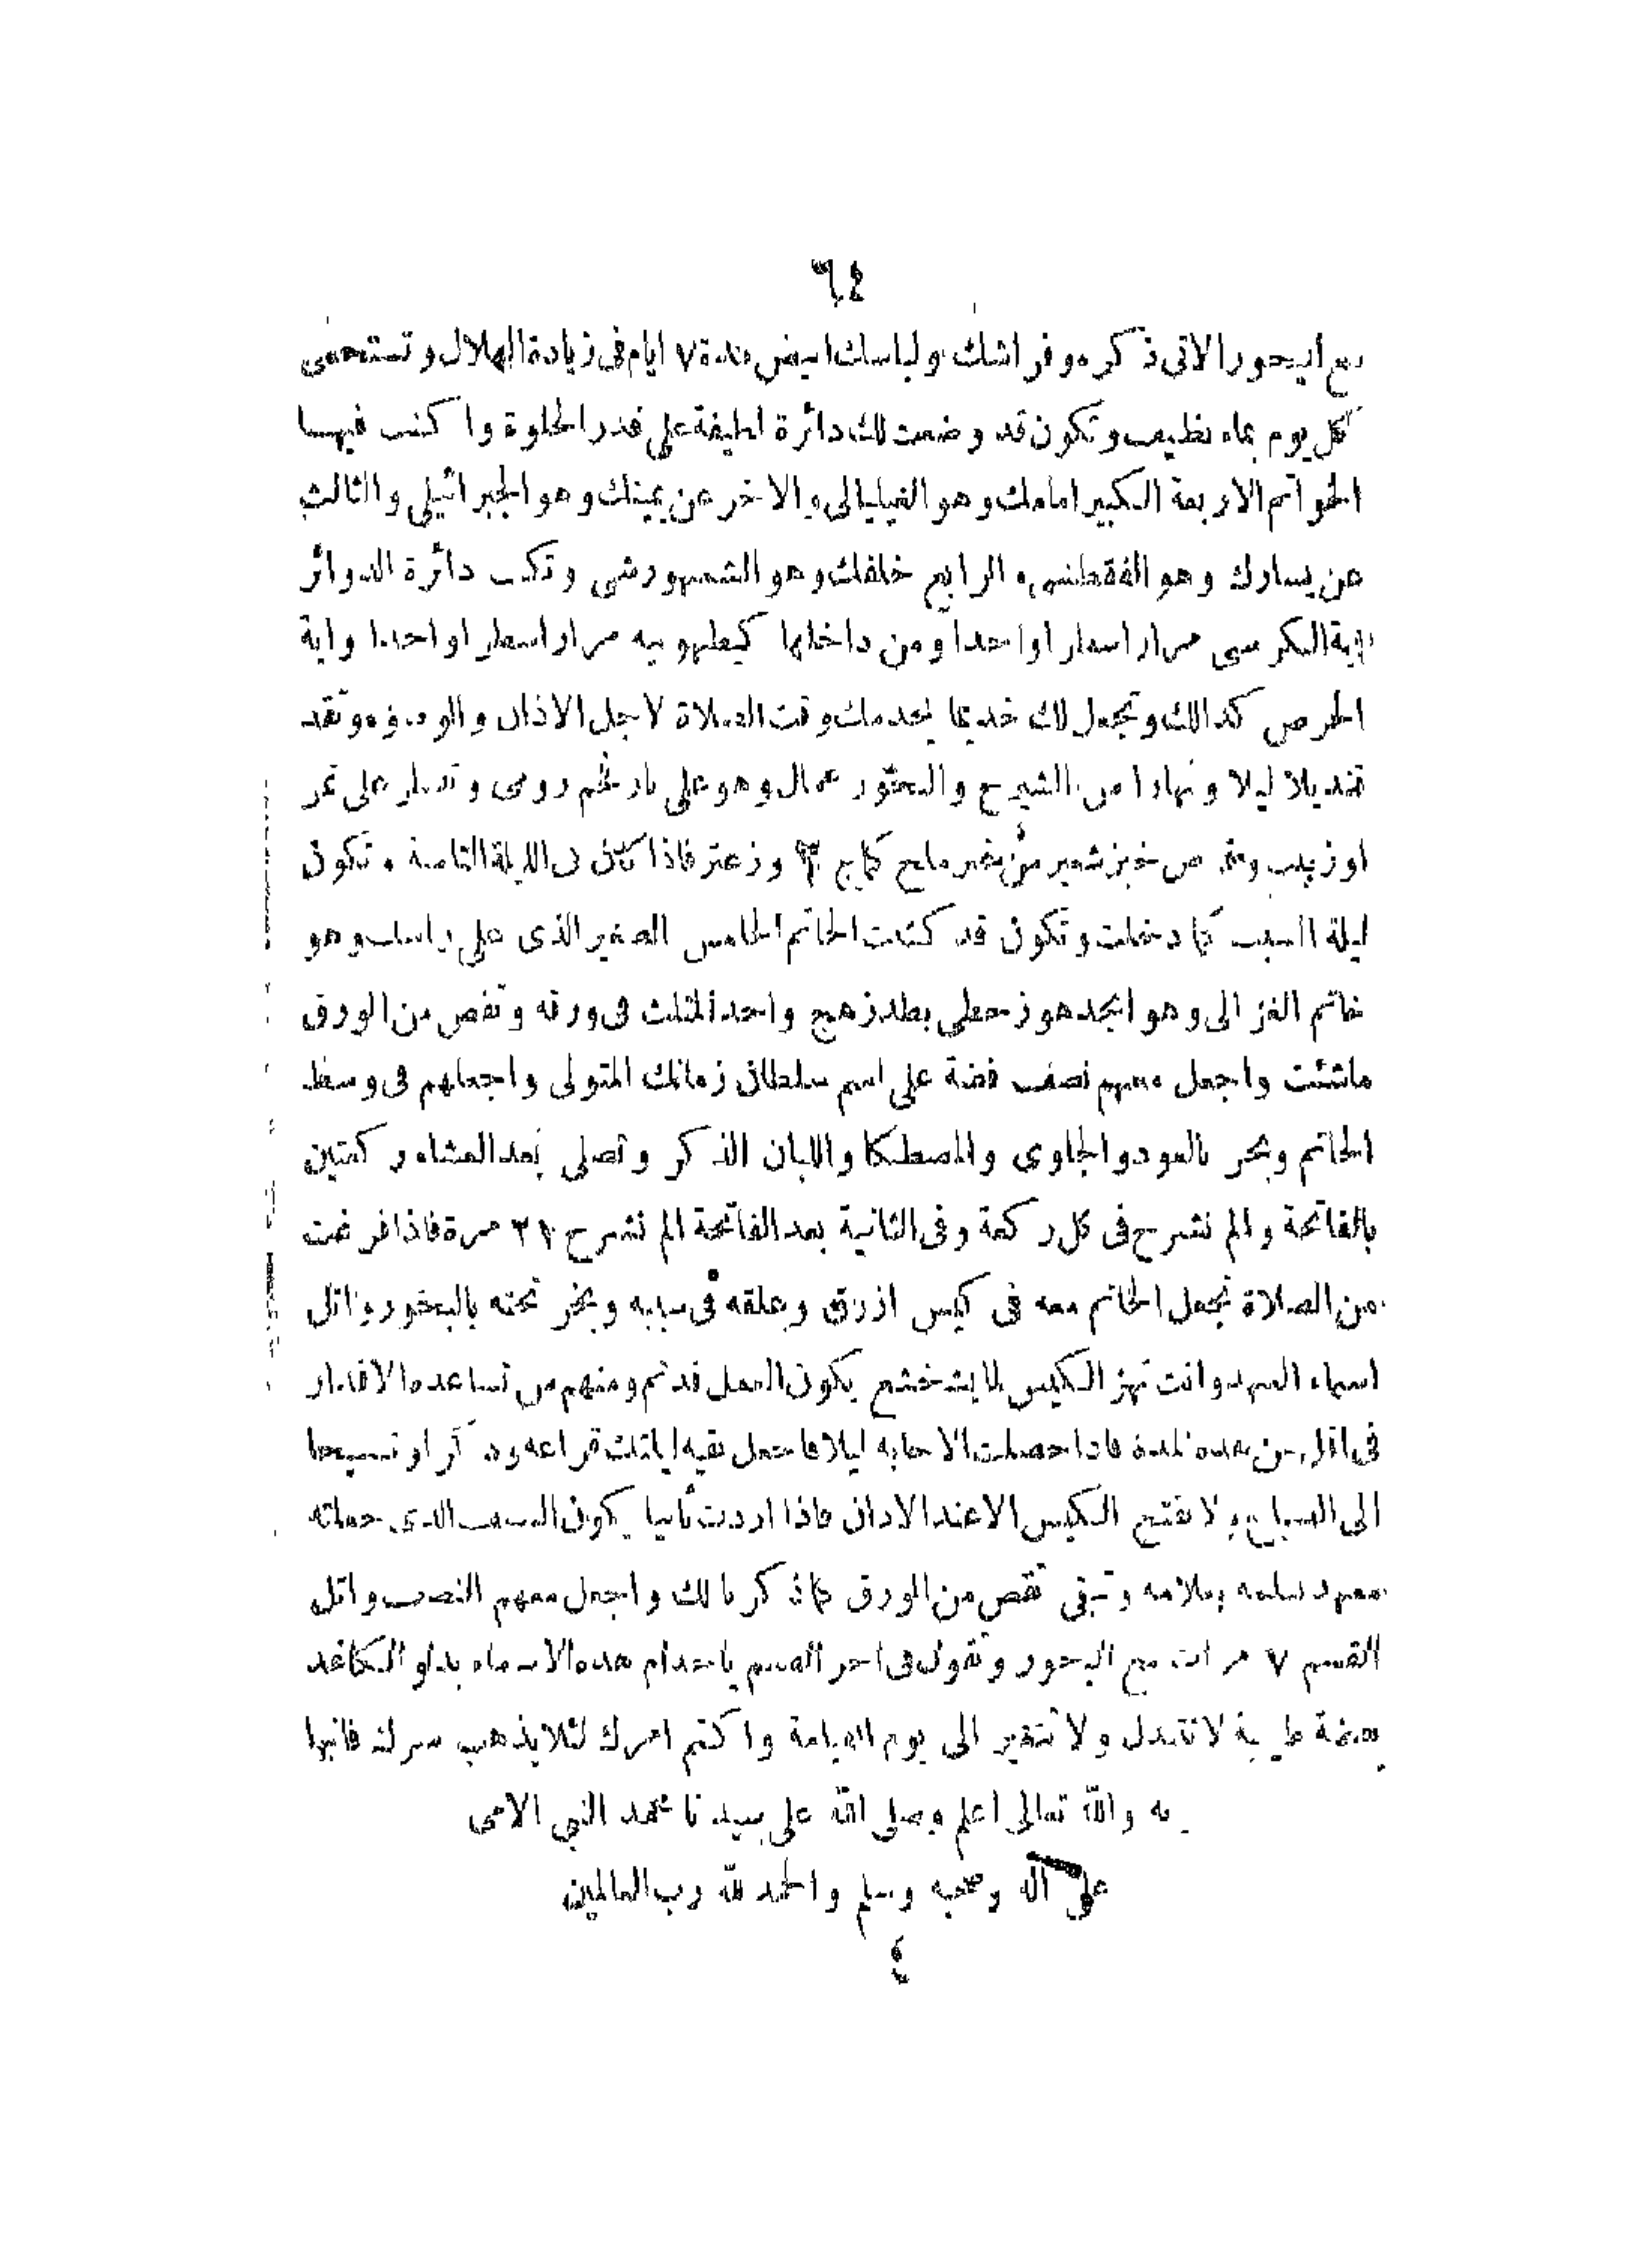 ٦٤
مع البخور الاتى ذكره وفراشك ولباسك ابيض مدة ٧ ايام فى زيادة الهلال وتستحمى
كل يوم بماء نظيف وتكون قد وضعت لك دائرة لطيفة على قدر الخلوة واكتب فيها
الخواتم الاربعة الكبير امامك وهو والاخر عن يمينك وهو الجبرائيلى والثالث
عن يسارك وهو والرابع خلفك وهو الشمهورشى وتكتب دائرة الدوائر
اية الكرسى مرار اسطار اواحدا ومن داخلها كيطهوبيه مرار اسطار اواحدا واية
الحرص كذالك وتجعل لك خديما يخدمك وقت الصلاة لاجل الاذان والوضوء وتقد
قنديلا ليلا ونهارا من الشيرج والبخور عمال وهو على نار فحم رومى وتفطر على تمر
اوزبيب وخبز شعير من غير ملح وزعتر فاذا كان فى الليلة الثامنة وتكون
ليلة السبت كما دخلت وتكون قد كتبت الخاتم الخامس الصغير الذى على راسك وهو
خاتم الغزالى وهو ابجد هوز حطى بطد زهج واحد المثلث فى ورقه وتقص من الورق
ماشئت واجعل معهم نصف فضة على اسم سلطان زمانك المتولى واجعلهم فى وسط
الخاتم وبخر بالعود والجاوى والمصطكا واللبان الذكر وتصلى بعد العشاء ركعتين
بالفاتحة والم نشرح فى كل ركعة وفى الثانية بعد الفاتحة الم نشرح ٢١ مرة فاذا فرغت
من الصلاة تجعل الخاتم معه فى كيس ازرق وعلقه فى سيبه وبخر تحته بالبخور واتل
اسماء العهد وانت تهز الكيس لما يتخشخ يكون العمل قد تم ومنهم من تساعده الاقدار
فى اقل من هذه المدة فاذا حصلت الاجابه ليلا فاجعل بقيه ليلتك قراءه وذكرا وتسبيحا
الى الصباح ولا تفتح الكيس الا عند الاذان فاذا اردت ثانيا يكون النصف الذى جعلته
معهم تعلمه بعلامه وتبقى تقص من الورق كما ذكرنا لك واجعل معهم النصف واتل
القسم ٧ مرات مع البخور وتقول فى اخر القسم ياخدام هذه الاسماء بدلو الكاغد
بفضة طيبة لا تتبدل ولا تتغير الى يوم القيامة واكتم امرك لئلا يذهب سرك فانها
به والله تعالى اعلم وصلى الله على سيدنا محمد النبى الامى
على آله وصحبه وسلم والحمد لله رب العالمين
٤